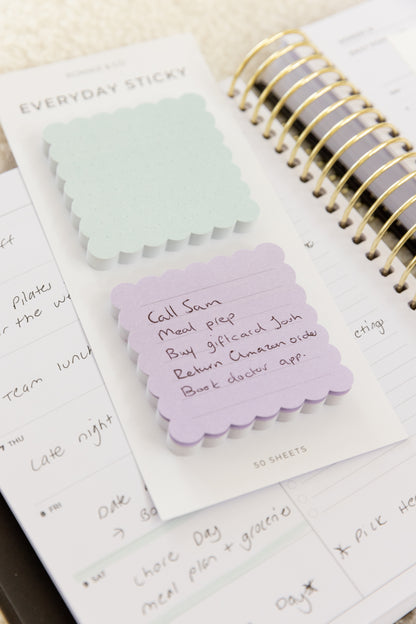 EVERYDAY STICKY
Call Sam
Meal prep
Buy giftcard Josh
Return Amazon order
Book doctor app.
50 SHEETS
Pilates
for the we
Team lunch
THU
Late night
FRI
Date
SAT
Chore Day
meal plan + groceries
Day
Pick He